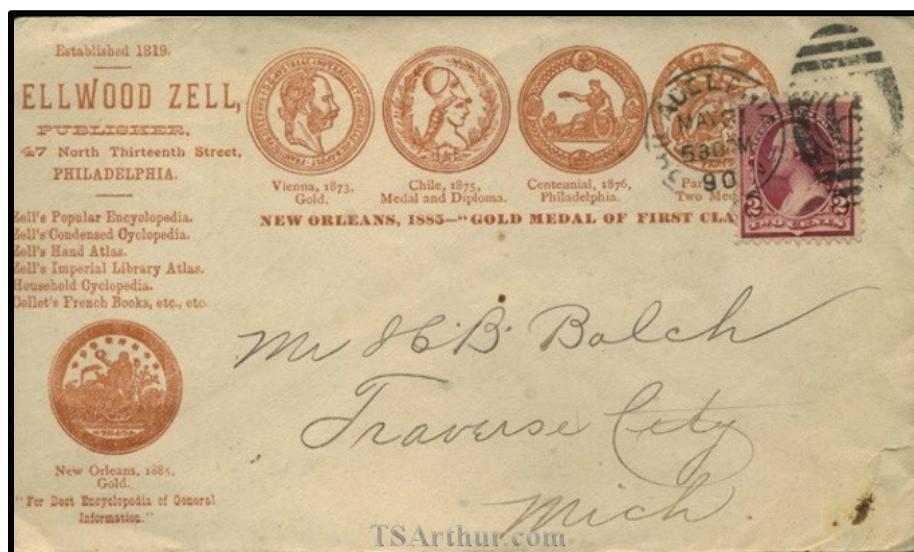 Established 1819.
ELLWOOD ZELL,
PUBLISHER,
47 North Thirteenth Street,
PHILADELPHIA.
Zell's Popular Encyclopedia.
Zell's Condensed Cyclopedia.
Zell's Hand Atlas.
Zell's Imperial Library Atlas.
Household Cyclopedia.
Collot's French Books, etc., etc.
New Orleans, 1885.
Gold.
"For Best Encyclopedia of General
Information."
Vienna, 1873.
Gold.
Chile, 1875,
Medal and Diploma.
Centenial, 1876,
Philadelphia.
Two Med
NEW ORLEANS, 1885—"GOLD MEDAL OF FIRST CLA
MAY
530PM
90
2 2
TWO CENTS
Mr H. B. Balch
Traverse City
Mich.
TSArthur.com